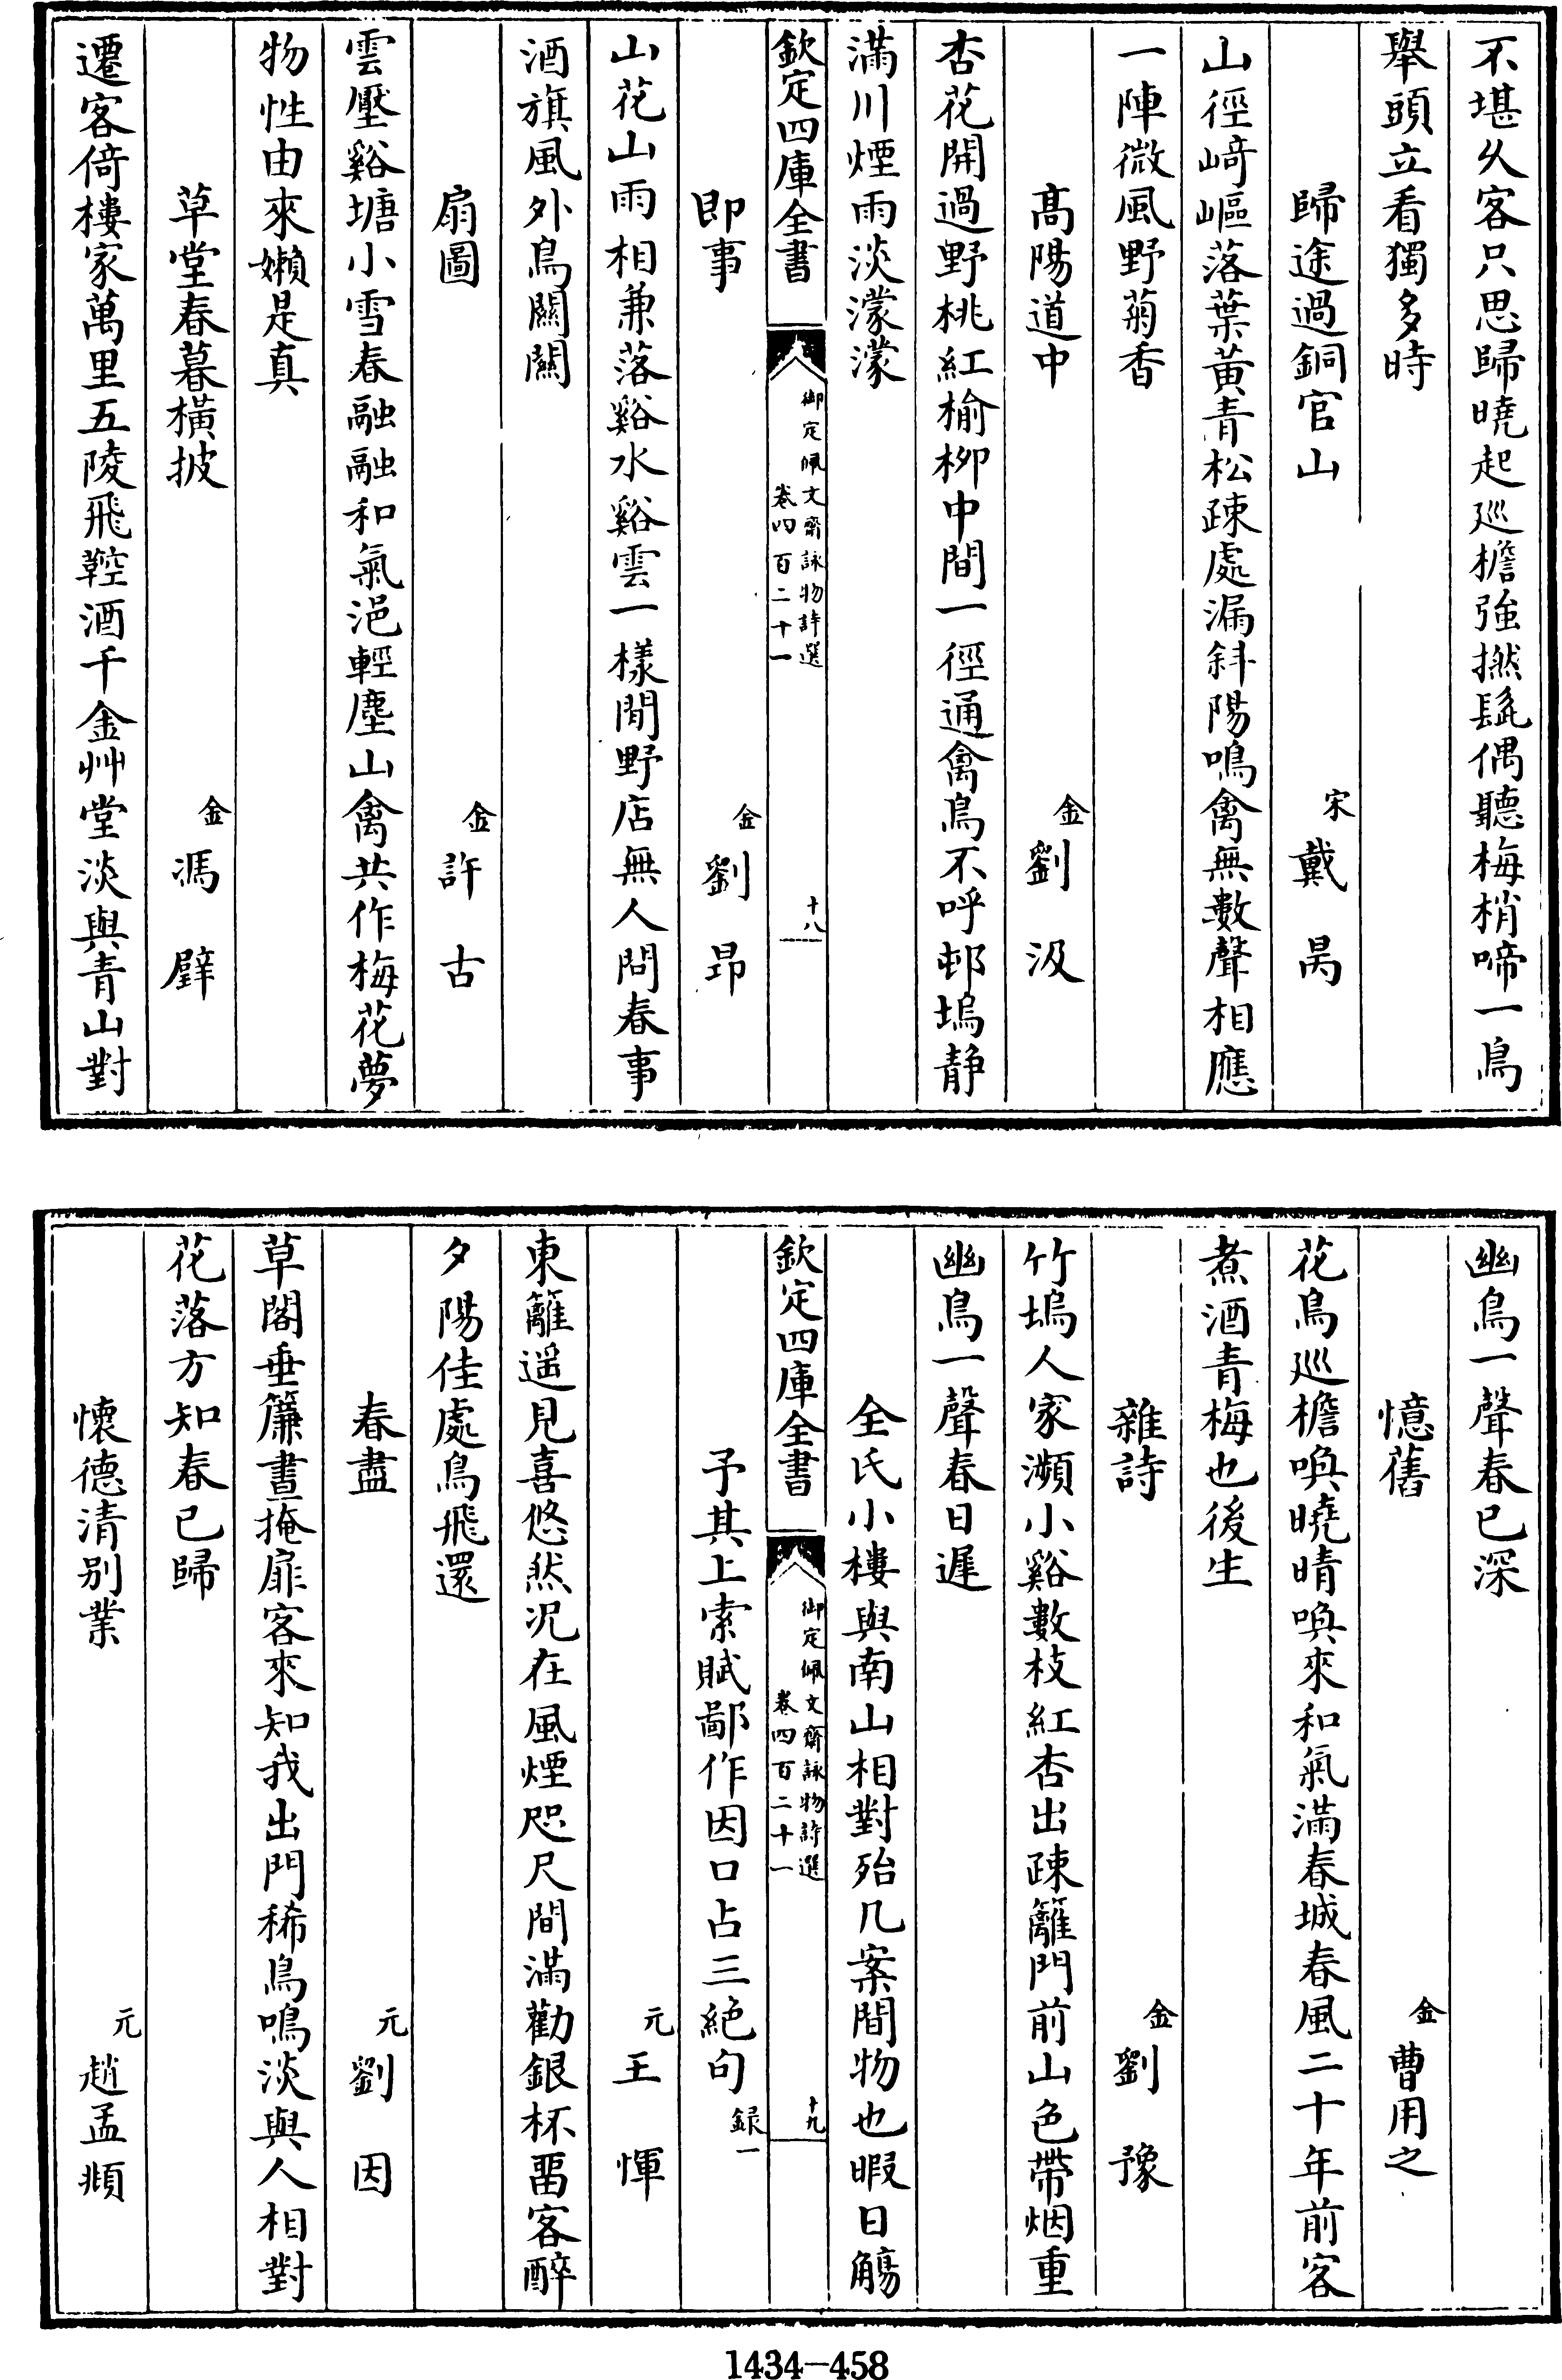 不堪久客只思歸曉起巡檐強撚髭偶聽梅梢啼一鳥
舉頭立看獨多時
歸途過銅官山　宋戴昺
山徑崎嶇落葉黃青松疎處漏斜陽鳴禽無數聲相應
一陣微風野菊香
高陽道中　金劉汲
杏花開過野桃紅榆柳中間一徑通禽鳥不呼邨塢静
滿川煙雨淡濛濛
欽定四庫全書　御定佩文齋詠物詩選　卷四百二十一　十八
即事　金劉昂
山花山雨相兼落谿水谿雲一樣閒野店無人問春事
酒旗風外鳥關關
扇圖　金許古
雲壓谿塘小雪春融融和氣浥輕塵山禽共作梅花夢
物性由來嬾是真
草堂春暮橫披　金馮璧
遷客倚樓家萬里五陵飛鞚酒千金艸堂淡與青山對
幽鳥一聲春已深
憶舊　金曹用之
花鳥巡檐喚曉晴喚來和氣滿春城春風二十年前客
煮酒青梅也後生
雜詩　金劉豫
竹塢人家瀕小谿數枝紅杏出疎籬門前山色帶烟重
幽鳥一聲春日遲
全氏小樓與南山相對殆几案間物也暇日觴
予其上索賦鄙作因口占三絕句録一
元王惲
東籬遥見喜悠然况在風煙咫尺間滿勸銀杯畱客醉
夕陽佳處鳥飛還
春盡　元劉因
草閣垂簾晝掩扉客來知我出門稀鳥鳴淡與人相對
花落方知春已歸
懷德清别業　元趙孟頫
欽定四庫全書　御定佩文齋詠物詩選　卷四百二十一　十九
1434—458